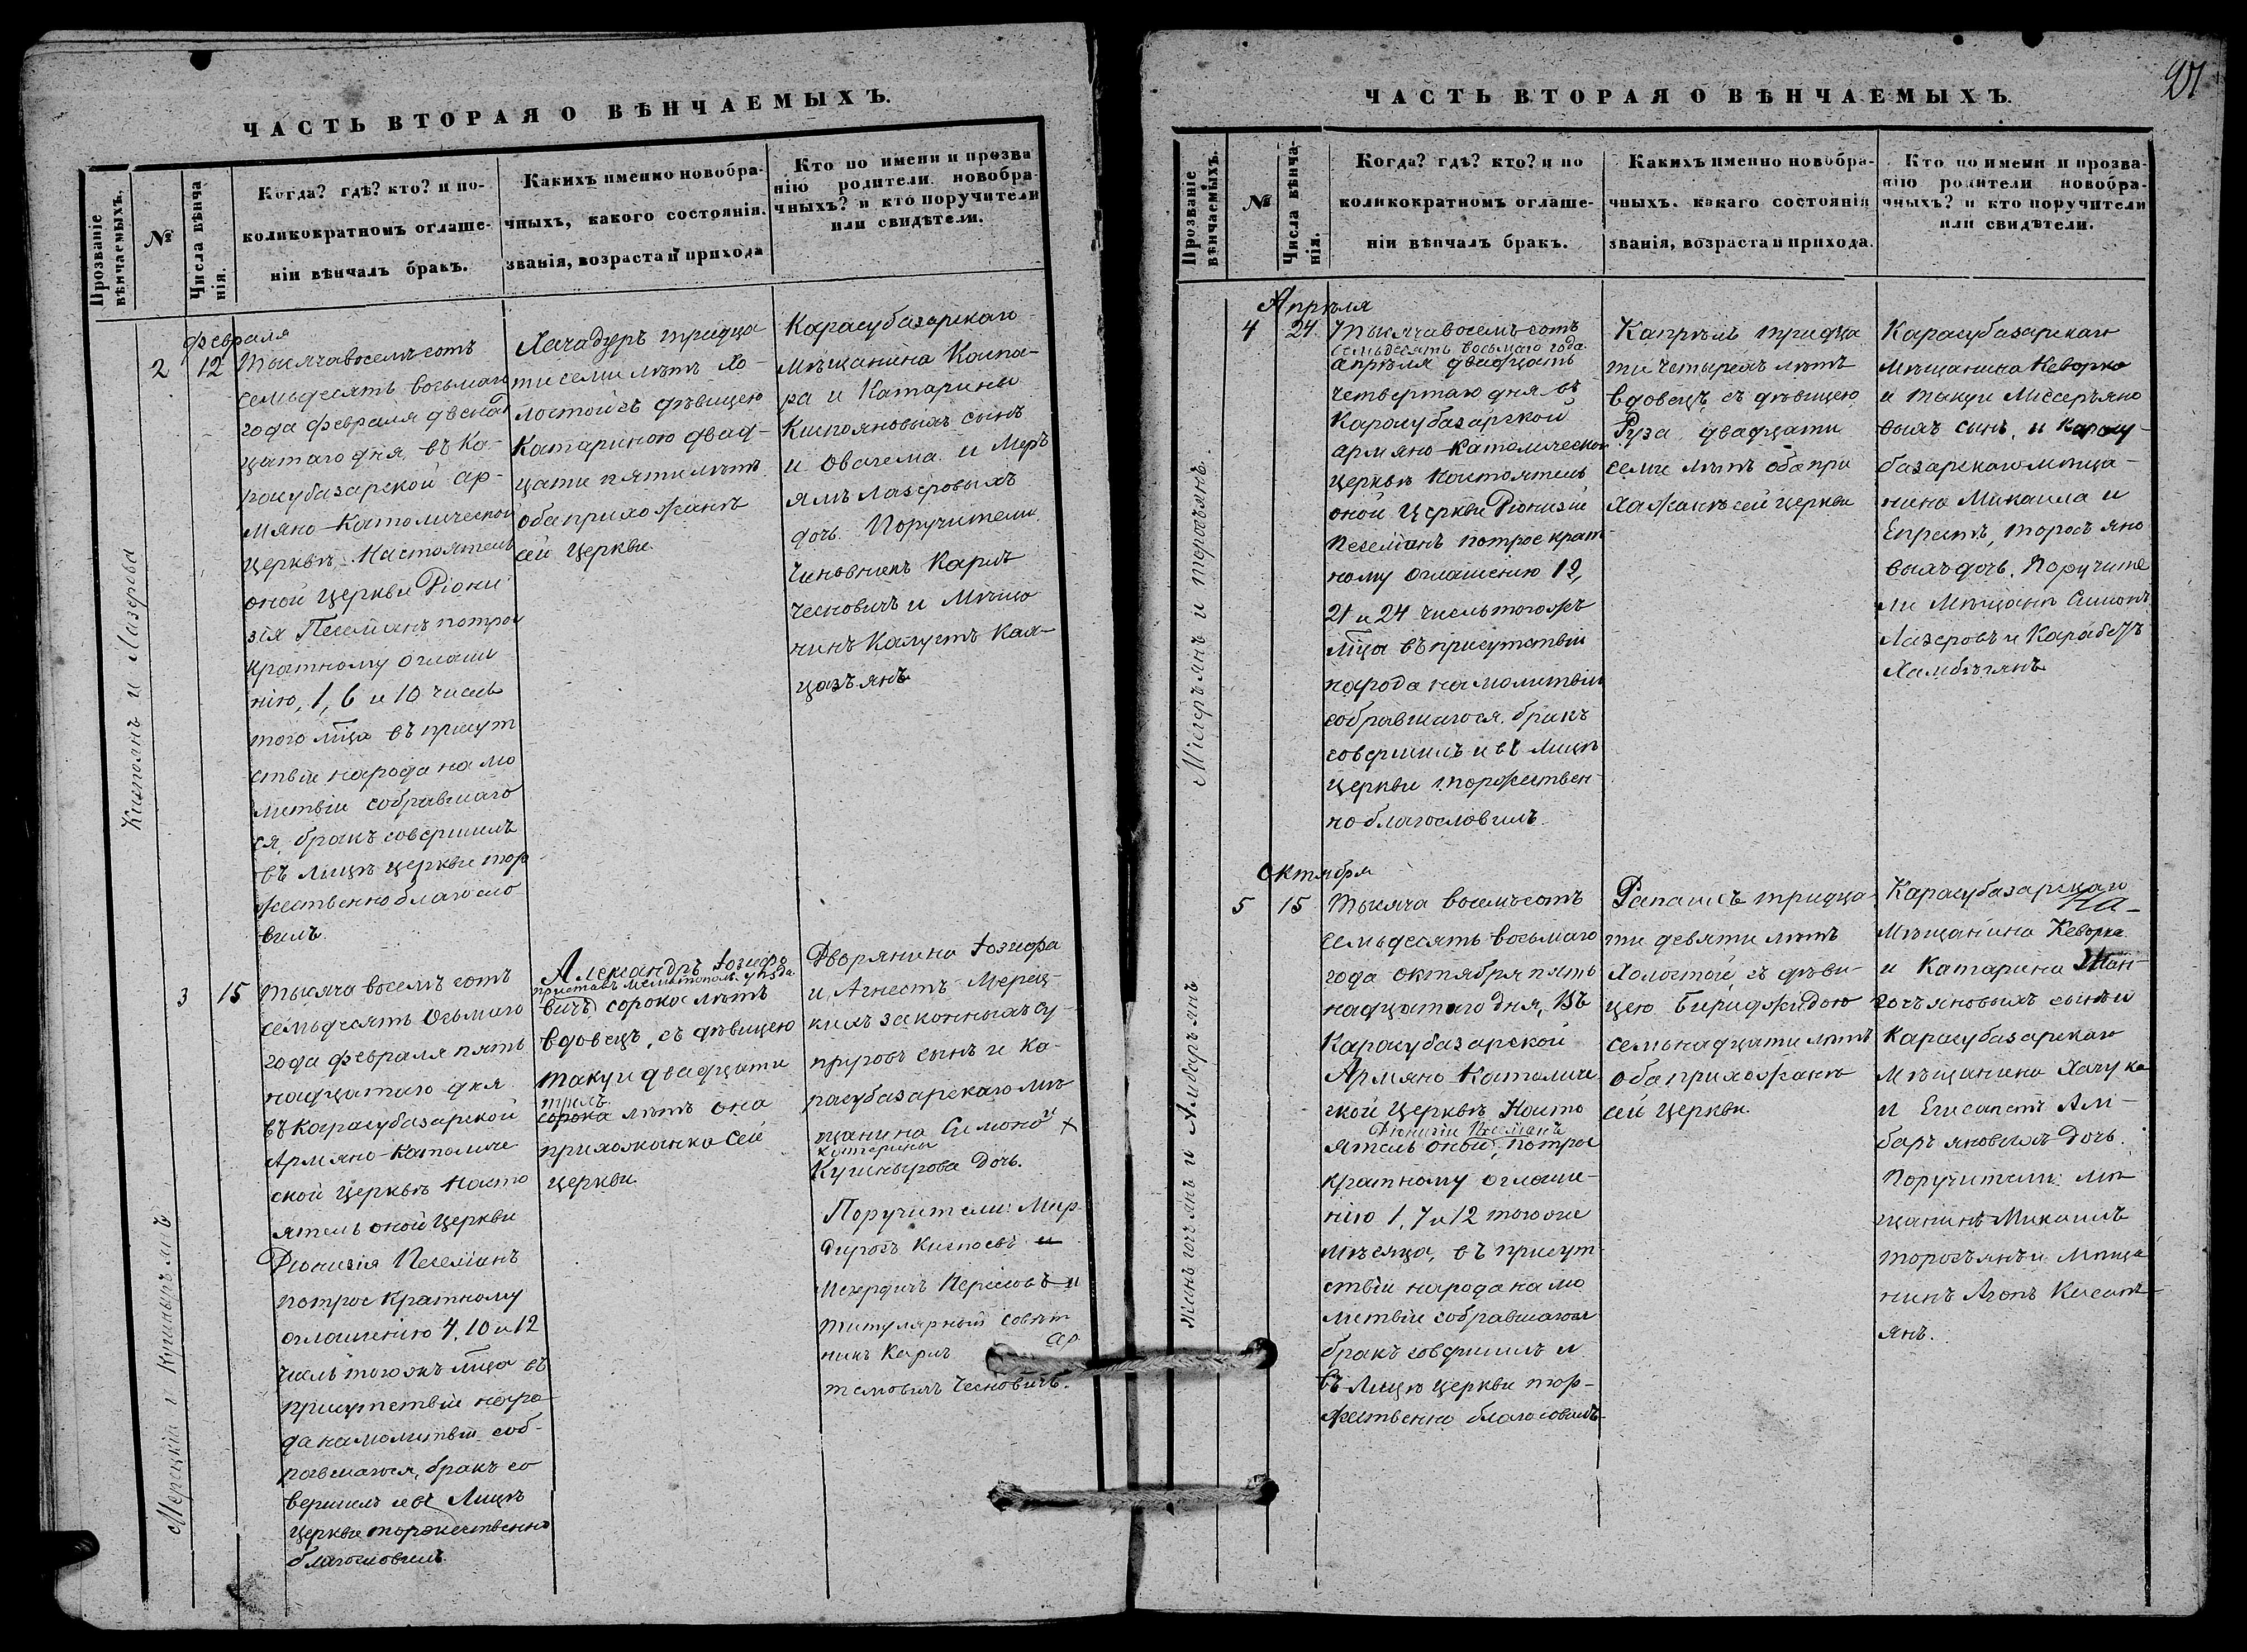 ЧАСТЬ ВТОРАЯ О ВѢНЧАЕМЫХЪ.
Прозваніе вѣнчаемыхъ.
№
Числа вѣнча
нія.
Когда? гдѣ? кто? и по-
коликократномъ оглаше-
ніи вѣнчалъ бракъ.
Какихъ именно новобра-
чныхъ, какого состоянія.
званія, возраста и прихода
Кто по имени и прозва
нію родители новобра-
чныхъ? и кто поручители
или свидѣтели.
Кисполнъ и Лазерова
Февраля
2
12
Тысяча восемь сотъ
семьдесять восьмаго
года февраля двенад
цатаго дня, въ Ка-
расубазарской ар-
мяно-Католической
церквѣ. Настоятель
оной церкви Діони
зія Песеліанъ потрое
кратному оглаше
нію, 1, 6 и 10 числъ
того мѣца въ присут
ствіи народа на мо
литвіи собравшаго
ся, бракъ совершилъ
въ лицѣ церкви тор
жественно благосло
вилъ.
Хачадуръ тридца
ти семи лѣтъ хо-
лостой съ дѣвицею
Катариною двад-
цати пяти лѣтъ
оба прихожанъ
сей церкви.
Карасубазарскаго
мѣщанина Каспа-
ра и Катарины
Киспояновыхъ сынъ
и Овагема и Мерь
ямъ Лазеровыхъ
дочь. Поручители
Чиновникъ Карлъ
Чесновичъ и Мѣща
нинъ Калустъ Кая-
цазъянъ
Мерецкій и Кушнырьянъ
3
15
Тысяча восемь сотъ
семьдесятъ осьмаго
года февраля пять
надцатаго дня
въ Карасубазарской
Армяно-Католиче
ской церквѣ Насто
ятель оной церкви
Діонизія Песеліанъ
потрое кратному
оглашенію 4, 10 и 12
числъ того жъ мѣца въ
присутствіи наро-
да на молитвіи соб-
равшагося, бракъ со
вершилъ и въ Лицѣ
церкви торжественно
благословилъ.
Александръ Іозифо
приставъ Мелитополь. уѣзда
вичъ сорока лѣтъ
вдовецъ, съ дѣвицею
Такуи двадцати
трехъ
сорока лѣтъ она
прихожанка сей
церкви.
Дворянина Іозифа
и Агнестъ Мерец-
килъ законныхъ су-
пруговъ сынъ и Ка-
расубазарскаго мѣ
щанина Симона и +
Катерины
Кушнырова Дочь.
Поручители: Мир
дирось Киспоевъ и
Мехердичъ Персисовъ и
титулярный совѣт
никъ Карлъ ар
темовичъ Чесновичъ.
21
ЧАСТЬ ВТОРАЯ О ВѢНЧАЕМЫХЪ.
Прозваніе вѣнчаемыхъ.
№
Числа вѣнча-
нія.
Когда? гдѣ? кто? и по
коликократномъ оглаше-
ніи вѣнчалъ бракъ.
Какихъ именно новобра-
чныхъ. какаго состоянія
званія, возраста и прихода.
Кто по имени и прозва-
нію родители новобра-
чныхъ? и кто поручители
или свидѣтели.
Місеръянъ и торосъянъ.
Апрѣля
4
24.
Тысяча восемь сотъ
семьдесять восьмаго года
апрѣля двадцать
четвертаго дня въ
Карасубазарской
армяно-католической
церквѣ Настоятель
оной Церкви Діонизій
Песеліанъ потрое крат
ному оглашенію 12,
21 и 24 числъ того жъ
мѣца въ присутствіи
народа на молитвіи
собравшагося. бракъ
совершилъ и въ лицѣ
церкви торжествен-
но благословилъ.
Капрѣлъ тридца
ти четырехъ лѣтъ
вдовецъ съ дѣвицею
Руза двадцати
семи лѣтъ оба при
хажанъ сей церкви
Карасубазарскаго
мѣщанина Кеворка
и Такуи Мисеръяно
выхъ сынъ, и Карасу-
базарскаго мѣща-
нина Микаила и
Епретъ, торосъяно
выхъ дочь. Поручите
ли Мѣщанъ Симонъ
Лазеровъ и Карабетъ
Хамбъгянъ
Жанъгочъянъ и Амберъянъ
Октября
5
15
Тысяча восемьсотъ
семьдесятъ восьмаго
года октября пять
надцатаго дня, въ
Карасубазарской
Армяно-Католиче
ской Церквѣ Насто
Діонизій Песеліанъ
ятель оной, потрое
кратному оглаше-
нію 1, 7 и 12 того же
мѣсяца, въ присут-
ствіи народа на мо
литвіи собравшагося
бракъ совершилъ и
въ Лицѣ церкви тор-
жественно благословилъ.
Рапаисъ тридца-
ти девяти лѣтъ
Холостой съ дѣви-
цею Бириджидою
семьнадцати лѣтъ
оба прихожанъ
сей церкви.
Карасубазарскаго
мѣщанина Кеворка
и Катарина Жан-
гочъяновыхъ сынъ и
Карасубазарскаго
мѣщанина Хачука
и Елисапетъ Ам-
баръяновыхъ Дочь.
Поручители: мѣ
щанинъ Микаилъ
торосъянъ и мѣща
нинъ Агопъ Кисапъ-
янъ.